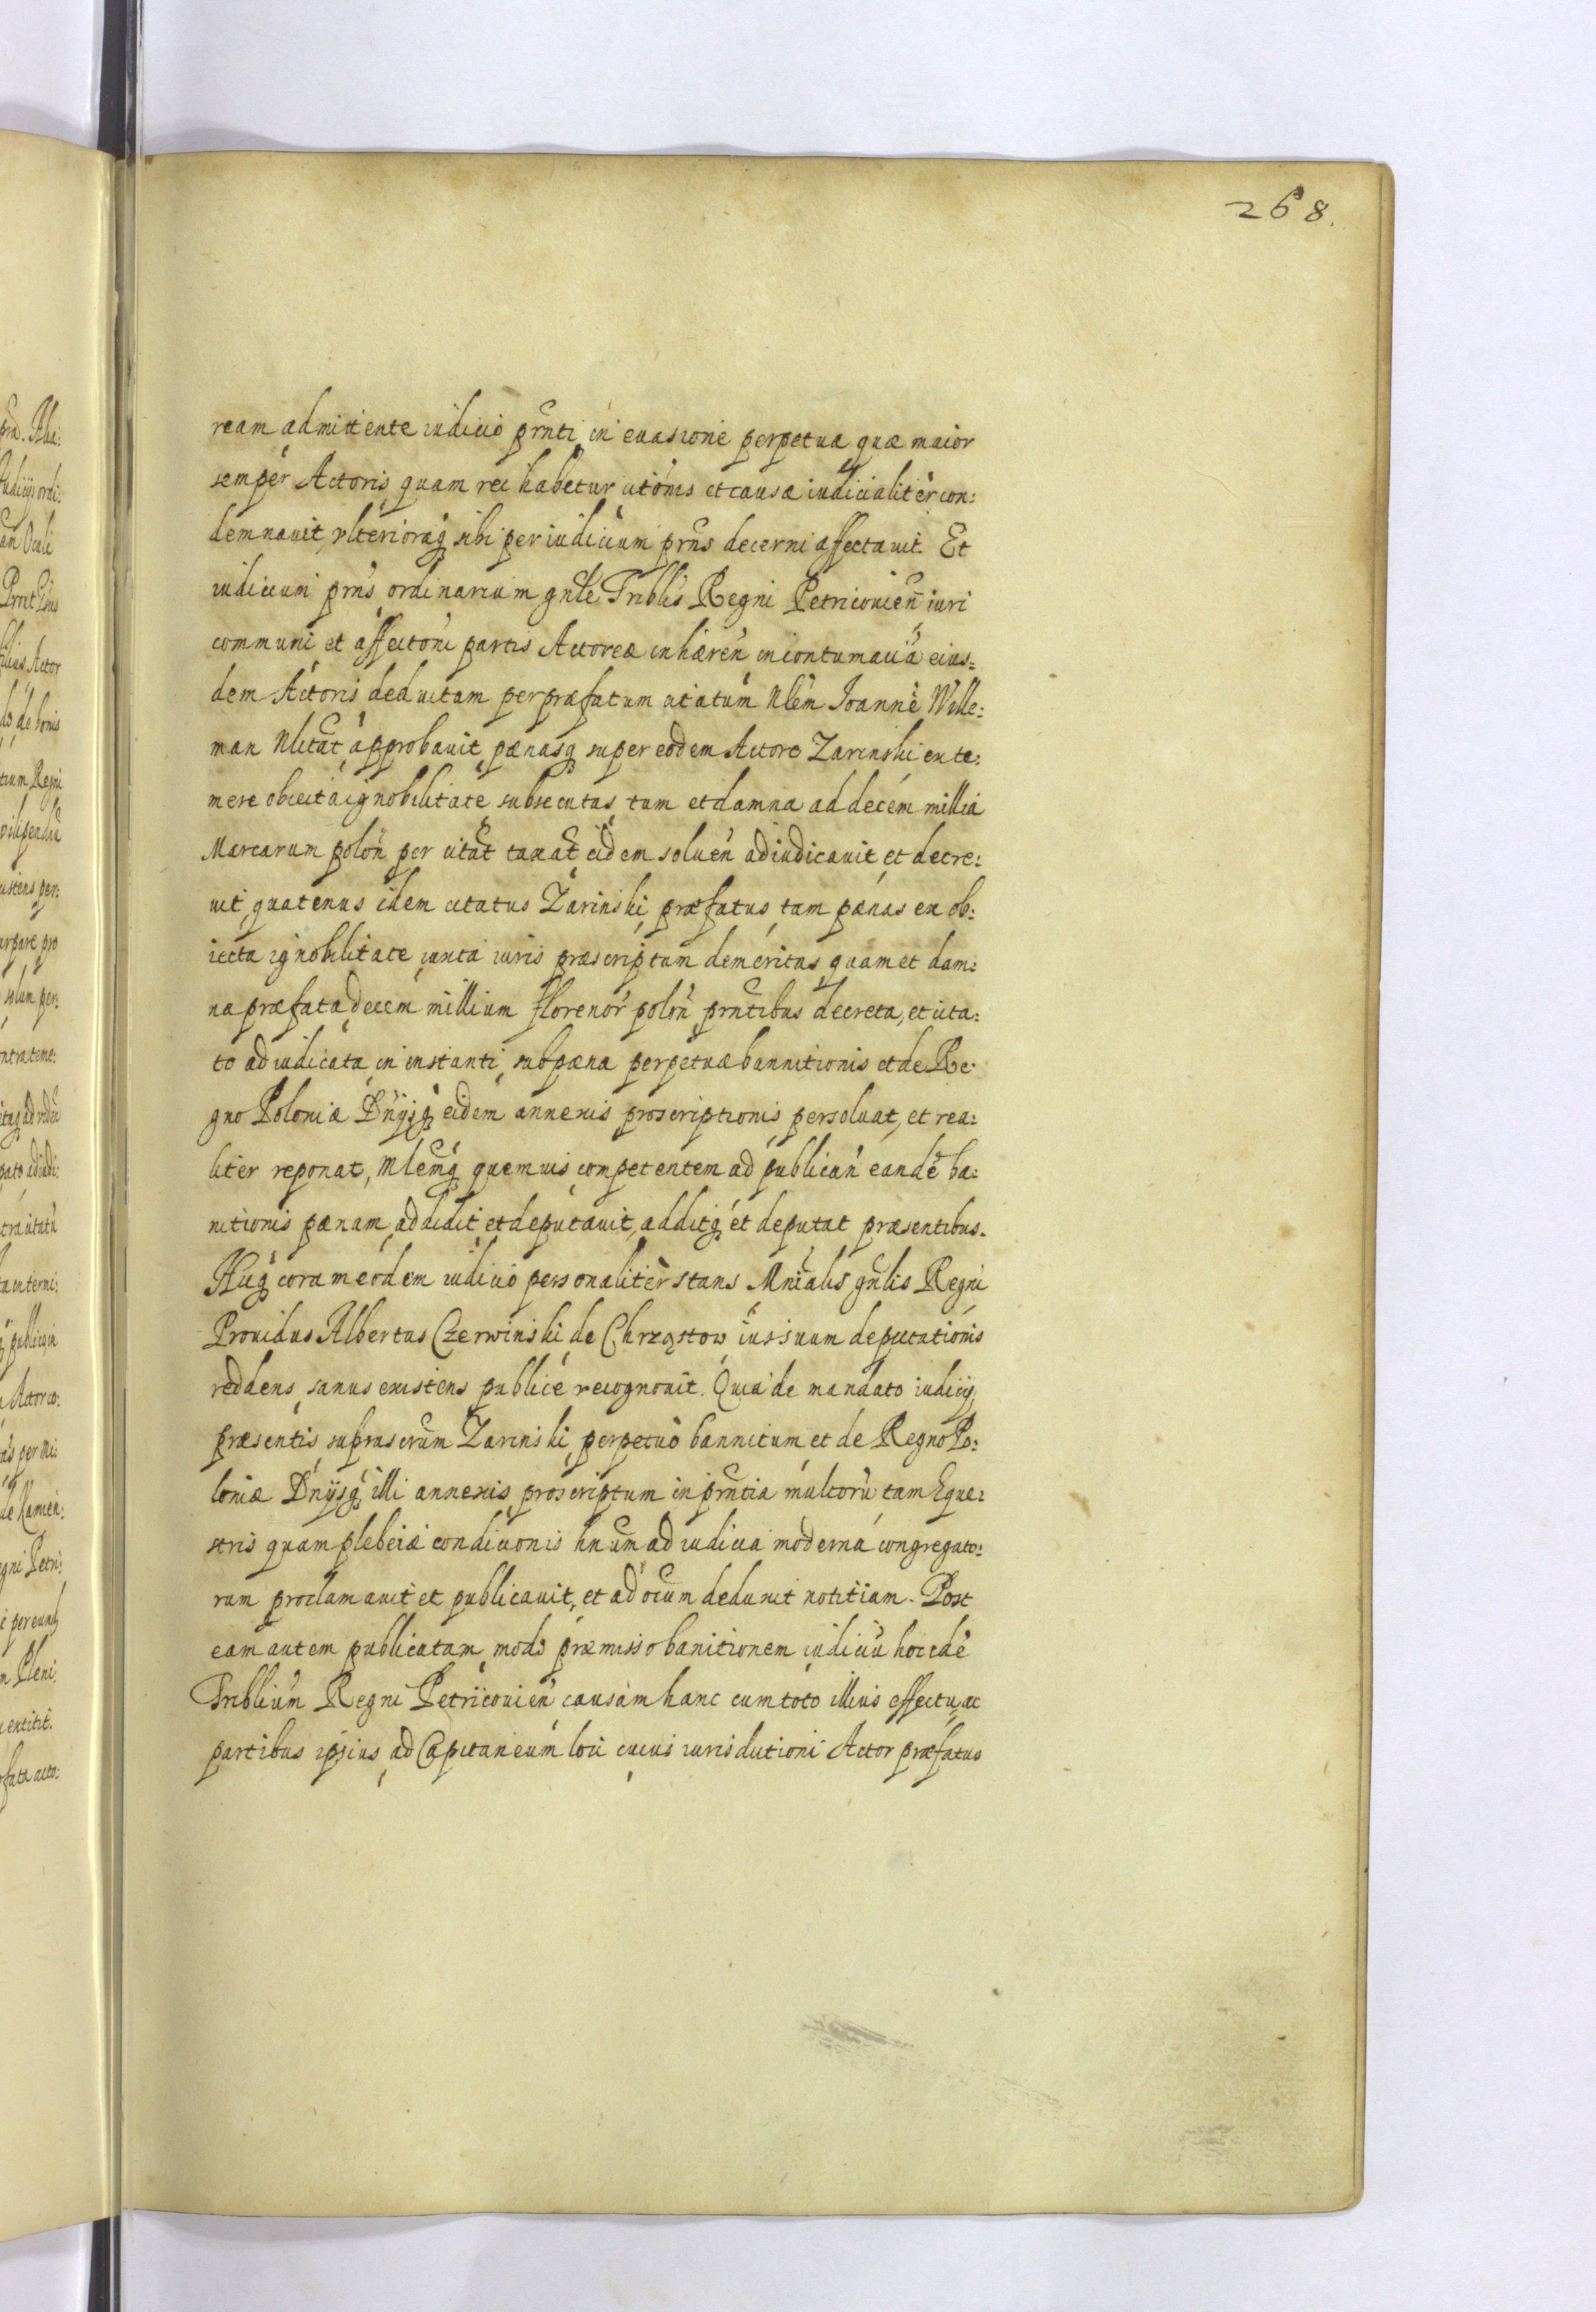 268.
ream admittente iudicio prnti in euasione perpetua quæ maior
semper Actoris quam rei habetur citõnis et causæ iudicialiter con:
demnauit, vlterioraq sibi per iudicium prns decerni affectauit. Et
iudicium prns ordinarium gnle Triblis Regni Petricouien iuri
communi et affectõni partis Actoreæ inhæren in contumacia eius:
dem Actoris deductam per præfatum citatum Nlem Joannẽ Wille:
man Nlitat approbauit, pænasq super eodem Actore Zarinski ex te:
mere obiecta ignobilitate subsecutas, tum et damna ad decem millia
Marcarum polon per citat taxat eidem soluen adiudicauit, et decre:
uit, quatenus idem citatus Zarinski præfatus, tam pænas ex ob:
iecta ignobilitate iuxta iuris præscriptum demeritas, quam et dam:
na præfata decem millium florenor polon prntibus decreta, et cita:
to adiudicata, in instanti, sub pæna perpetuæ bannitionis et de Re:
gno Poloniæ Dnijsq eidem annexis proscriptionis persoluat, et rea:
liter reponat, Mlemq quemuis competentem ad publican eandẽ ba:
nitionis pænam, addidit et deputauit, additq et deputat præsentibus.
Hicq coram eodem iudicio personaliter stans Mnialis gnlis Regni
Prouidus Albertus Czerwinski de Chrząstow iussuum deputationis
reddens, sanus existens publice recognouit. Quia de mandato iudicij
præsentis, suprascrum Zarinski, perpetuo bannitum, et de Regno Po:
loniæ Dnijsq illi annexis, proscriptum in prntia multorũ tam Eque:
stris quam plebeiæ condicionis hnum ad iudicia moderna congregato:
rum proclamauit et publicauit, et ad oium deduxit notitiam. Post
eam autem publicatam modo præmisso banitionem iudiciũ hocce dẽ
Triblium Regni Petricouien causam hanc cum toto illius effectu, ac
partibus ipsius, ad Capitaneum loci cuius iurisdictioni Actor præfatus